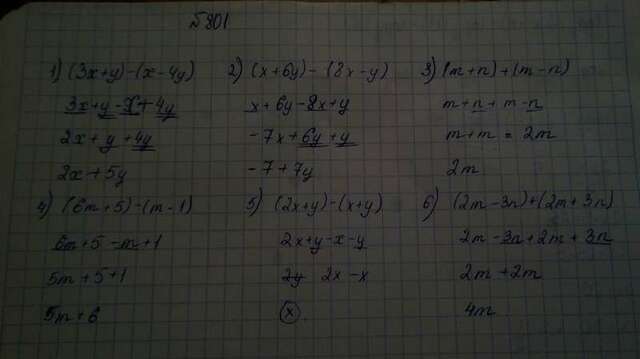 №801
1) (3x+y)-(x-4y)
3x+y-x+4y
2x+y+4y
2x+5y
2) (x+6y)-(8x-y)
x+6y-8x+y
-7x+6y+y
-7+7y
3) (m+n)+(m-n)
m+n+m-n
m+m=2m
2m
4) (6m+5)-(m-1)
6m+5-m+1
5m+5+1
5m+6
5) (2x+y)-(x+y)
2x+y-x-y
2x-x
x
6) (2m-3n)+(2m+3n)
2m-3n+2m+3n
2m+2m
4m